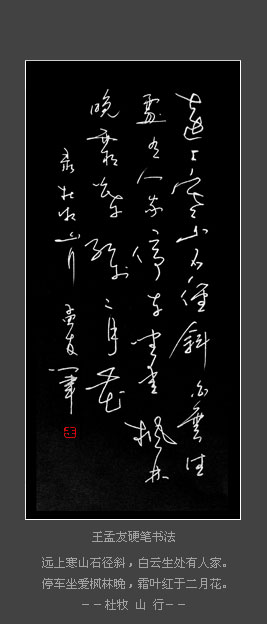 遠上寒山石徑斜白雲生
處有人家停车坐爱枫林
晚霜葉红于二月花
录杜牧山行 孟友筆
王
王孟友硬笔书法
远上寒山石径斜，白云生处有人家。
停车坐爱枫林晚，霜叶红于二月花。
－－杜牧 山 行－－